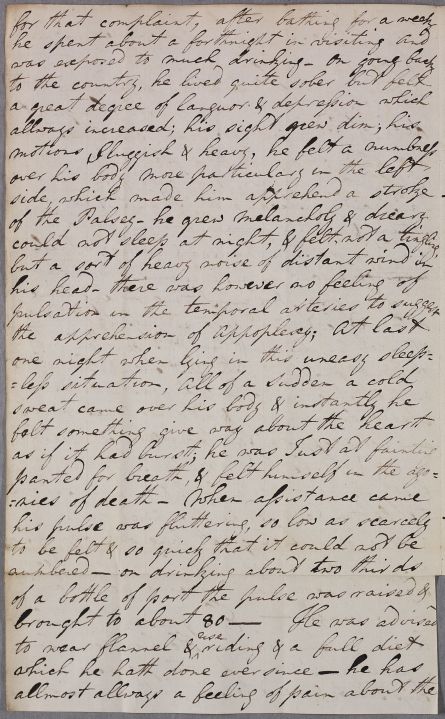 for that complaint, after bathing for a week
he spent about a forthnight in visiting and
was exposed to much drinking - on going back
to the country, he lived quite sober but felt
a great degree of languor & depression which
allways increased; his sight grew dim; his
motions sluggish & heavy, he felt a numbness
over his body more particulary in the left
side, which made him apprehend a stroke
of the Palsey - he grew melancholy & dreary
could not sleep at night, & felt, not a tingling
but a sort of heavy noise of distant wind in
his head - there was however no feeling of
pulsation in the temporal arteries to suggest
the apprehension of appoplexy; At last
one night when lying in this uneasy sleep-
=less situation, all of a sudden a cold
sweat came over his body & instantly he
felt something give way about the heart
as if it had burst; he was Just at fainting
panted for breath, & felt himself in the ago-
=nies of death - When assistance came
his pulse was fluttering, so low as scarcely
to be felt & so quick that it could not be
numbered - on drinking about two thirds
of a bottle of port the pulse was raised &
brought to about 80 — He was advised
to wear flannel & use riding & a full diet
which he hath done ever since - he has
allmost allways a feeling of pain about the